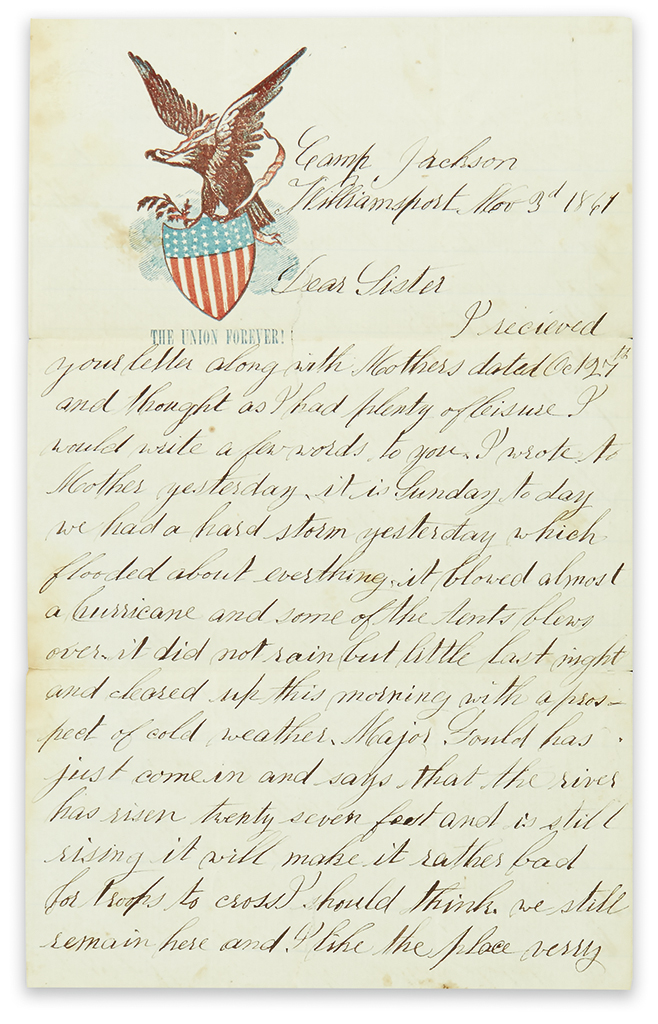 Camp Jackson
Williamsport Nov 3d 1861
Dear Sister
I recieved
THE UNION FOREVER!
your letter along with Mothers dated Oct 27th
and thought as I had plenty of leisure I
would write a few words to you. I wrote to
Mother yesterday. it is Sunday to day
we had a hard storm yesterday which
flooded about everthing. it blowed almost
a hurricane and some of the tents blew
over. it did not rain but little last night
and cleared up this morning with a pros-
pect of cold weather. Major Gould has
just come in and says that the river
has risen twenty seven feet and is still
rising it will make it rather bad
for troops to cross I should think. we still
remain here and I like the place verry